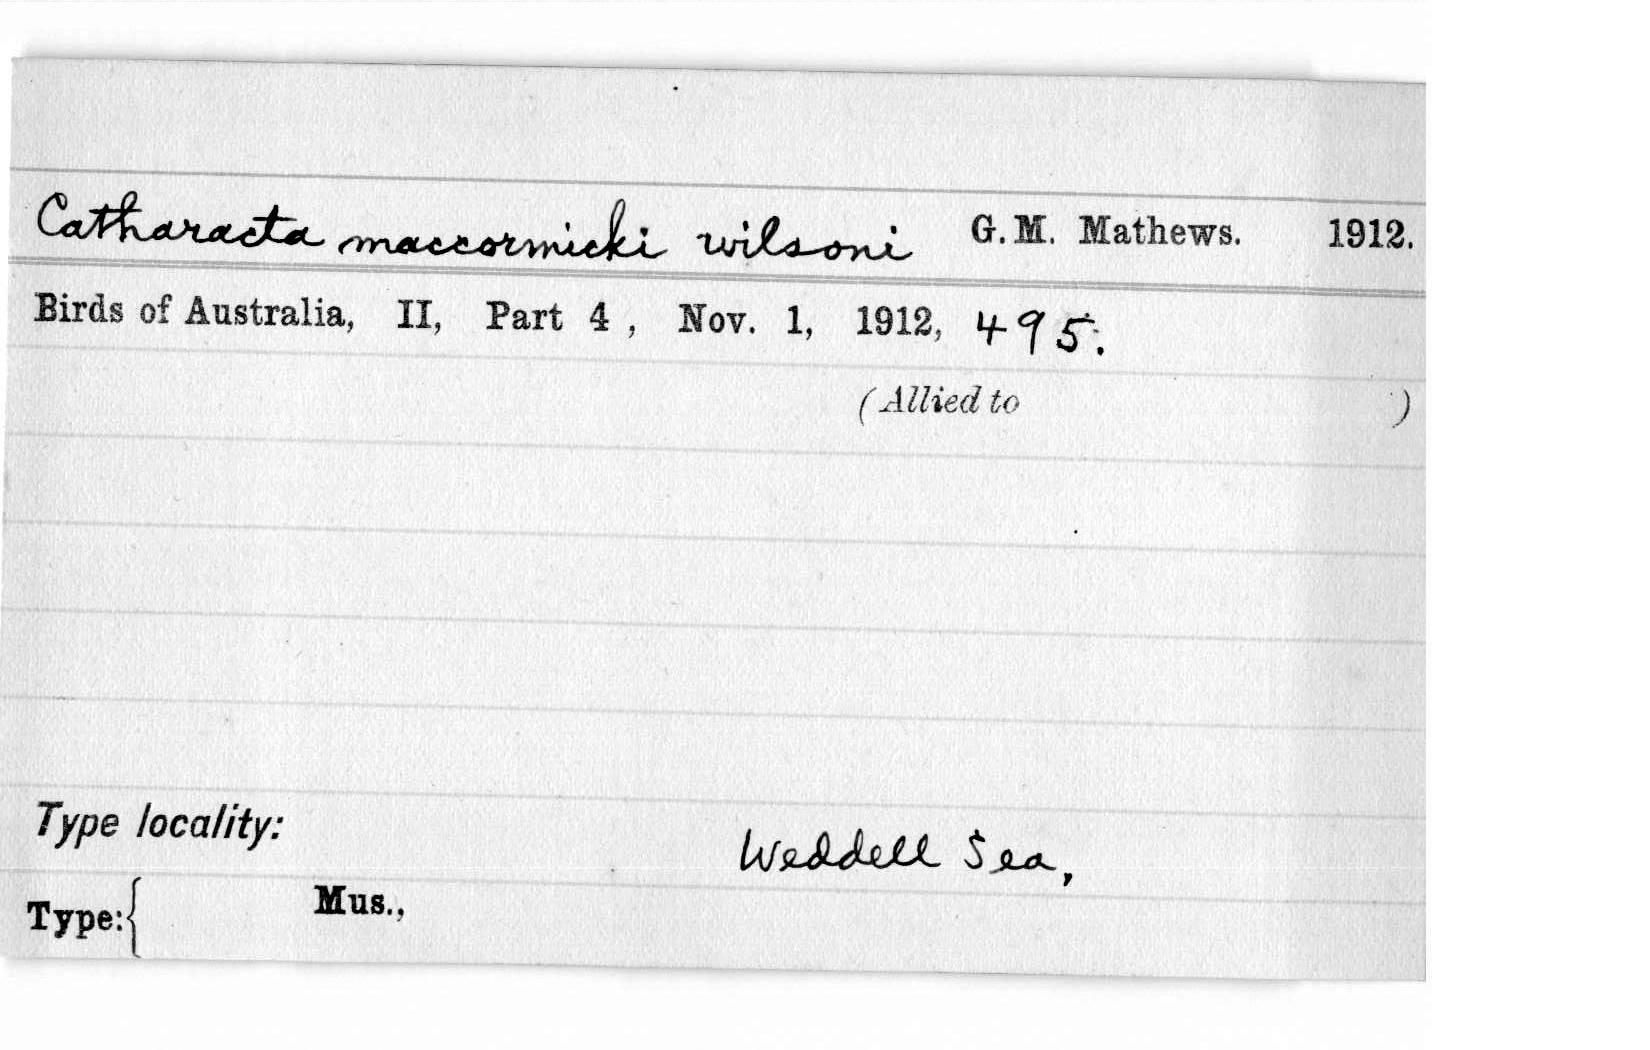 Catharacta maccormicki wilsoni G. M. Mathews. 1912.
Birds of Australia, II, Part 4, Nov. 1, 1912, 495.
(Allied to )
Type locality: Weddell Sea,
Type:{ Mus.,